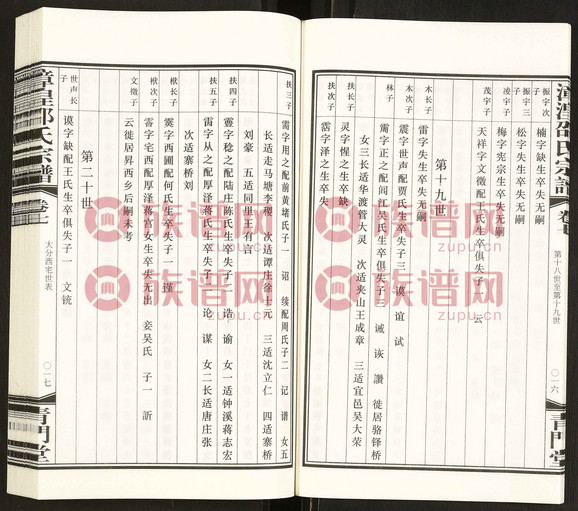 漳湟邵氏宗譜
卷七
第十八世至第十九世
〇一六
青門堂
振宇次子
楠字缺生卒失无嗣
振宇三子
松字失生卒失无嗣
凌宇子
梅字宪宗生卒失无嗣
茂宇子
天祥字文徵配王氏生卒俱失子一 云
第十九世
木长子
雷字失生卒失无嗣
木次子
震字世声配贾氏生卒失子三 谟 谊 试
林子
霭字正之配闾江吴氏生卒俱失子三 诫 诙 讚 徙居骆铎桥
女三长适华渡管大灵 次适夹山王成章 三适宜邑吴大荣
扶长子
灵字惺之缺生卒缺
扶次子
霑字泽之生卒失
扶三子
霱字用之配前黄堵氏子一 诏 续配周氏子二 记 谱 女五
长适走马塘李稷 次适谭庄徐士元 三适沈立仁 四适寨桥
刘豪 五适同里王有言
扶四子
靈字稔之配陆庄陈氏生卒失子二 浩 谕 女一适钟溪蒋志宏
扶五子
霱字从之配厚泽蒋氏生卒失子二 论 谋 女二长适唐庄张
次适寨桥刘
楸长子
霙字西圃配何氏生卒失子一 谨
楸次子
霭字宅西配厚泽蒋宫女生卒失无出 妾吴氏 子一 訢
文徵子
云徙居昇西乡后嗣未考
第二十世
世声长子
谟字缺配王氏生卒俱失子一 文镜
漳湟邵氏宗譜
卷七
大分西宅世表
〇一七
青門堂
族谱网
zupu.cn
族谱网
zupu.cn
族谱网
zupu.cn
族谱网
zupu.cn